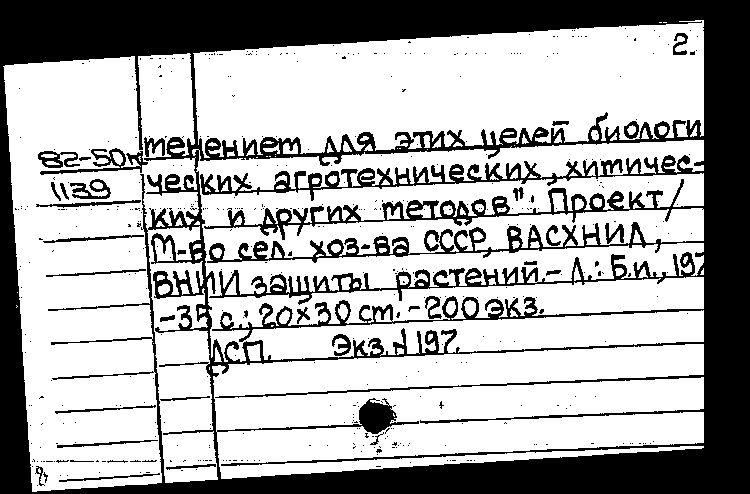 2.
82-50п
1139
менением для этих целей биологи
ческих, агротехнических, химичес-
ких и других методов": Проект/
М-во сел. хоз-ва СССР, ВАСХНИЛ,
ВНИИ защиты растений.- Л.: Б.и., 197
-35 с.; 20×30 см. - 200 экз.
ДСП. Экз. № 197.